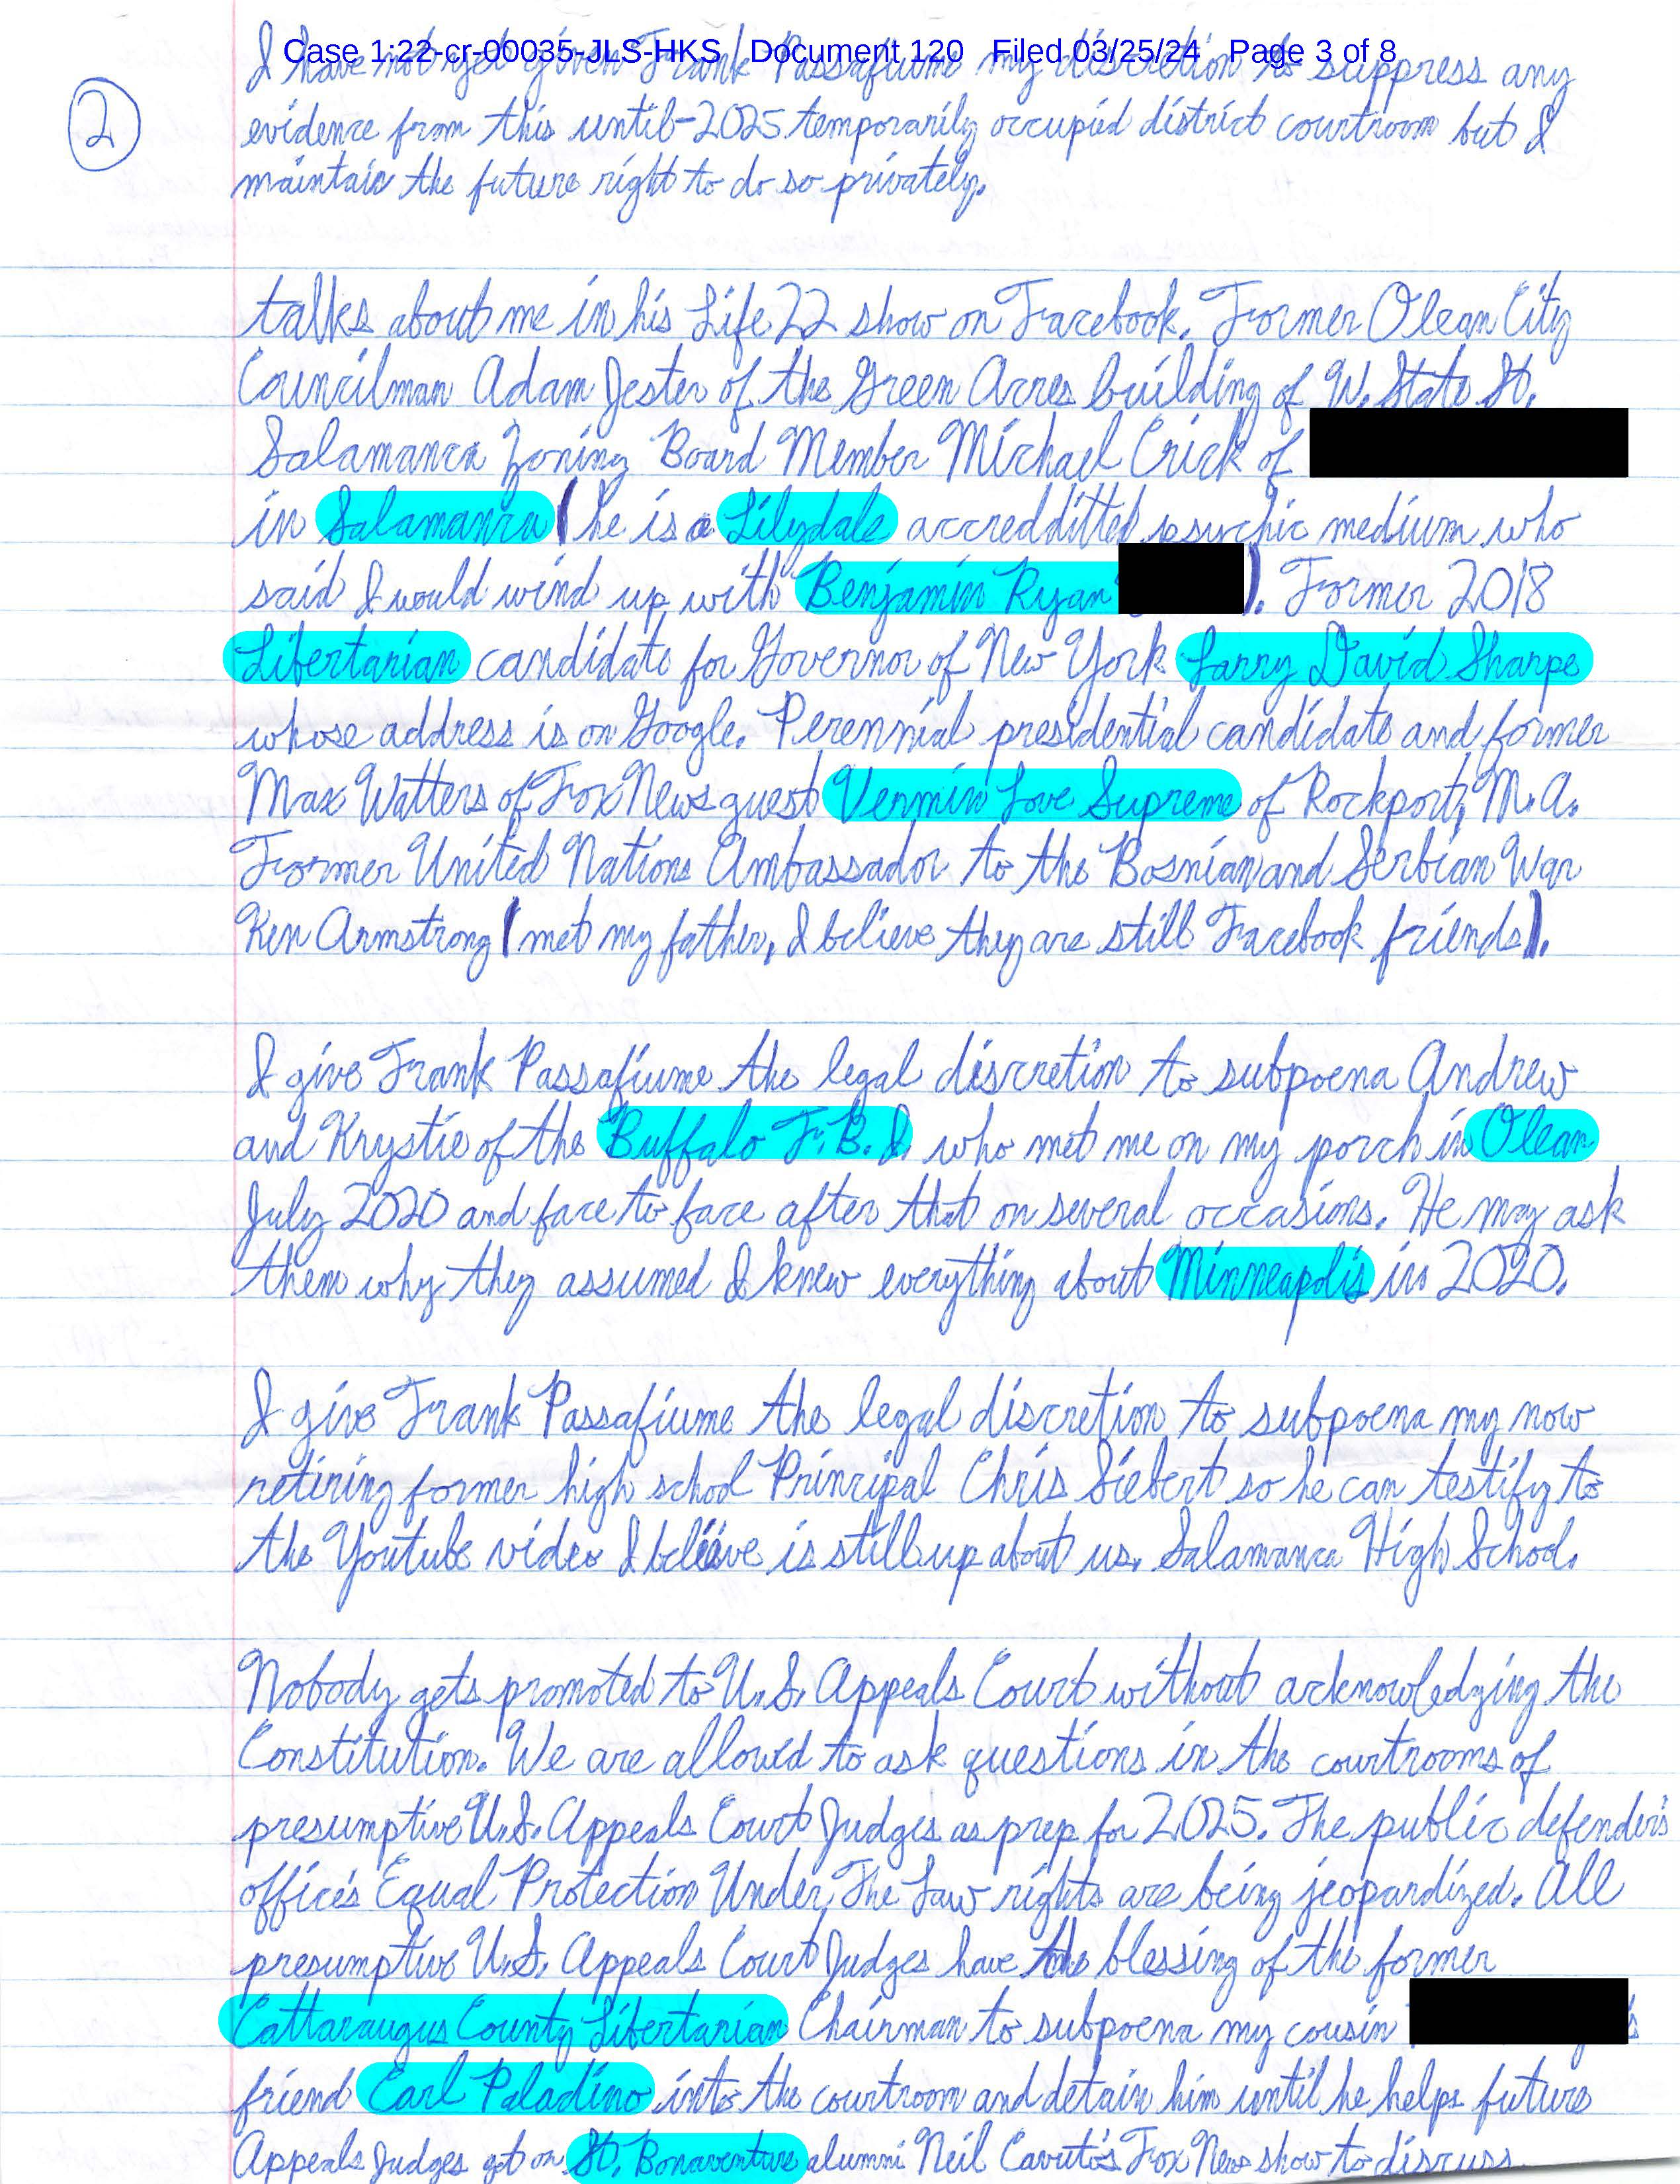 Case 1:22-cr-00035-JLS-HKS Document 120 Filed 03/25/24 Page 3 of 8
2
I have not yet given Frank Passafiume my discretion to suppress any
evidence from this until-2025 temporarily occupied district courtroom but I
maintain the future right to do so privately.
talks about me in his Life 22 show on Facebook. Former Olean City
Councilman Adam Jester of the Green Acres building of W. State St.
Salamanca Zoning Board Member Michael Crick of
in Salamanca (he is a Lilydale accredditted psychic medium who
said I would wind up with Benjamin Ryan ). Former 2018
Libertarian candidate for Governor of New York Larry David Sharpe
whose address is on Google. Perennial presidential candidate and former
Max Watters of Fox News guest Vermin Love Supreme of Rockport, M.A.
Former United Nations Ambassador to the Bosnian and Serbian War
Ken Armstrong (met my father, I believe they are still Facebook friends).
I give Frank Passafiume the legal discretion to subpoena Andrew
and Krystie of the Buffalo F.B.I. who met me on my porch in Olean
July 2020 and face to face after that on several occasions. He may ask
them why they assumed I knew everything about Minneapolis in 2020.
I give Frank Passafiume the legal discretion to subpoena my now
retiring former high school Principal Chris Siebert so he can testify to
the Youtube video I believe is still up about us. Salamanca High School.
Nobody gets promoted to U.S. Appeals Court without acknowledging the
Constitution. We are allowed to ask questions in the courtrooms of
presumptive U.S. Appeals Court Judges as prep for 2025. The public defender's
office's Equal Protection Under The Law rights are being jeopardized. All
presumptive U.S. Appeals Court Judges have the blessing of the former
Cattaraugus County Libertarian Chairman to subpoena my cousin
friend Carl Paladino into the courtroom and detain him until he helps future
Appeals Judges get on St. Bonaventure alumni Neil Cavuto's Fox News show to discuss